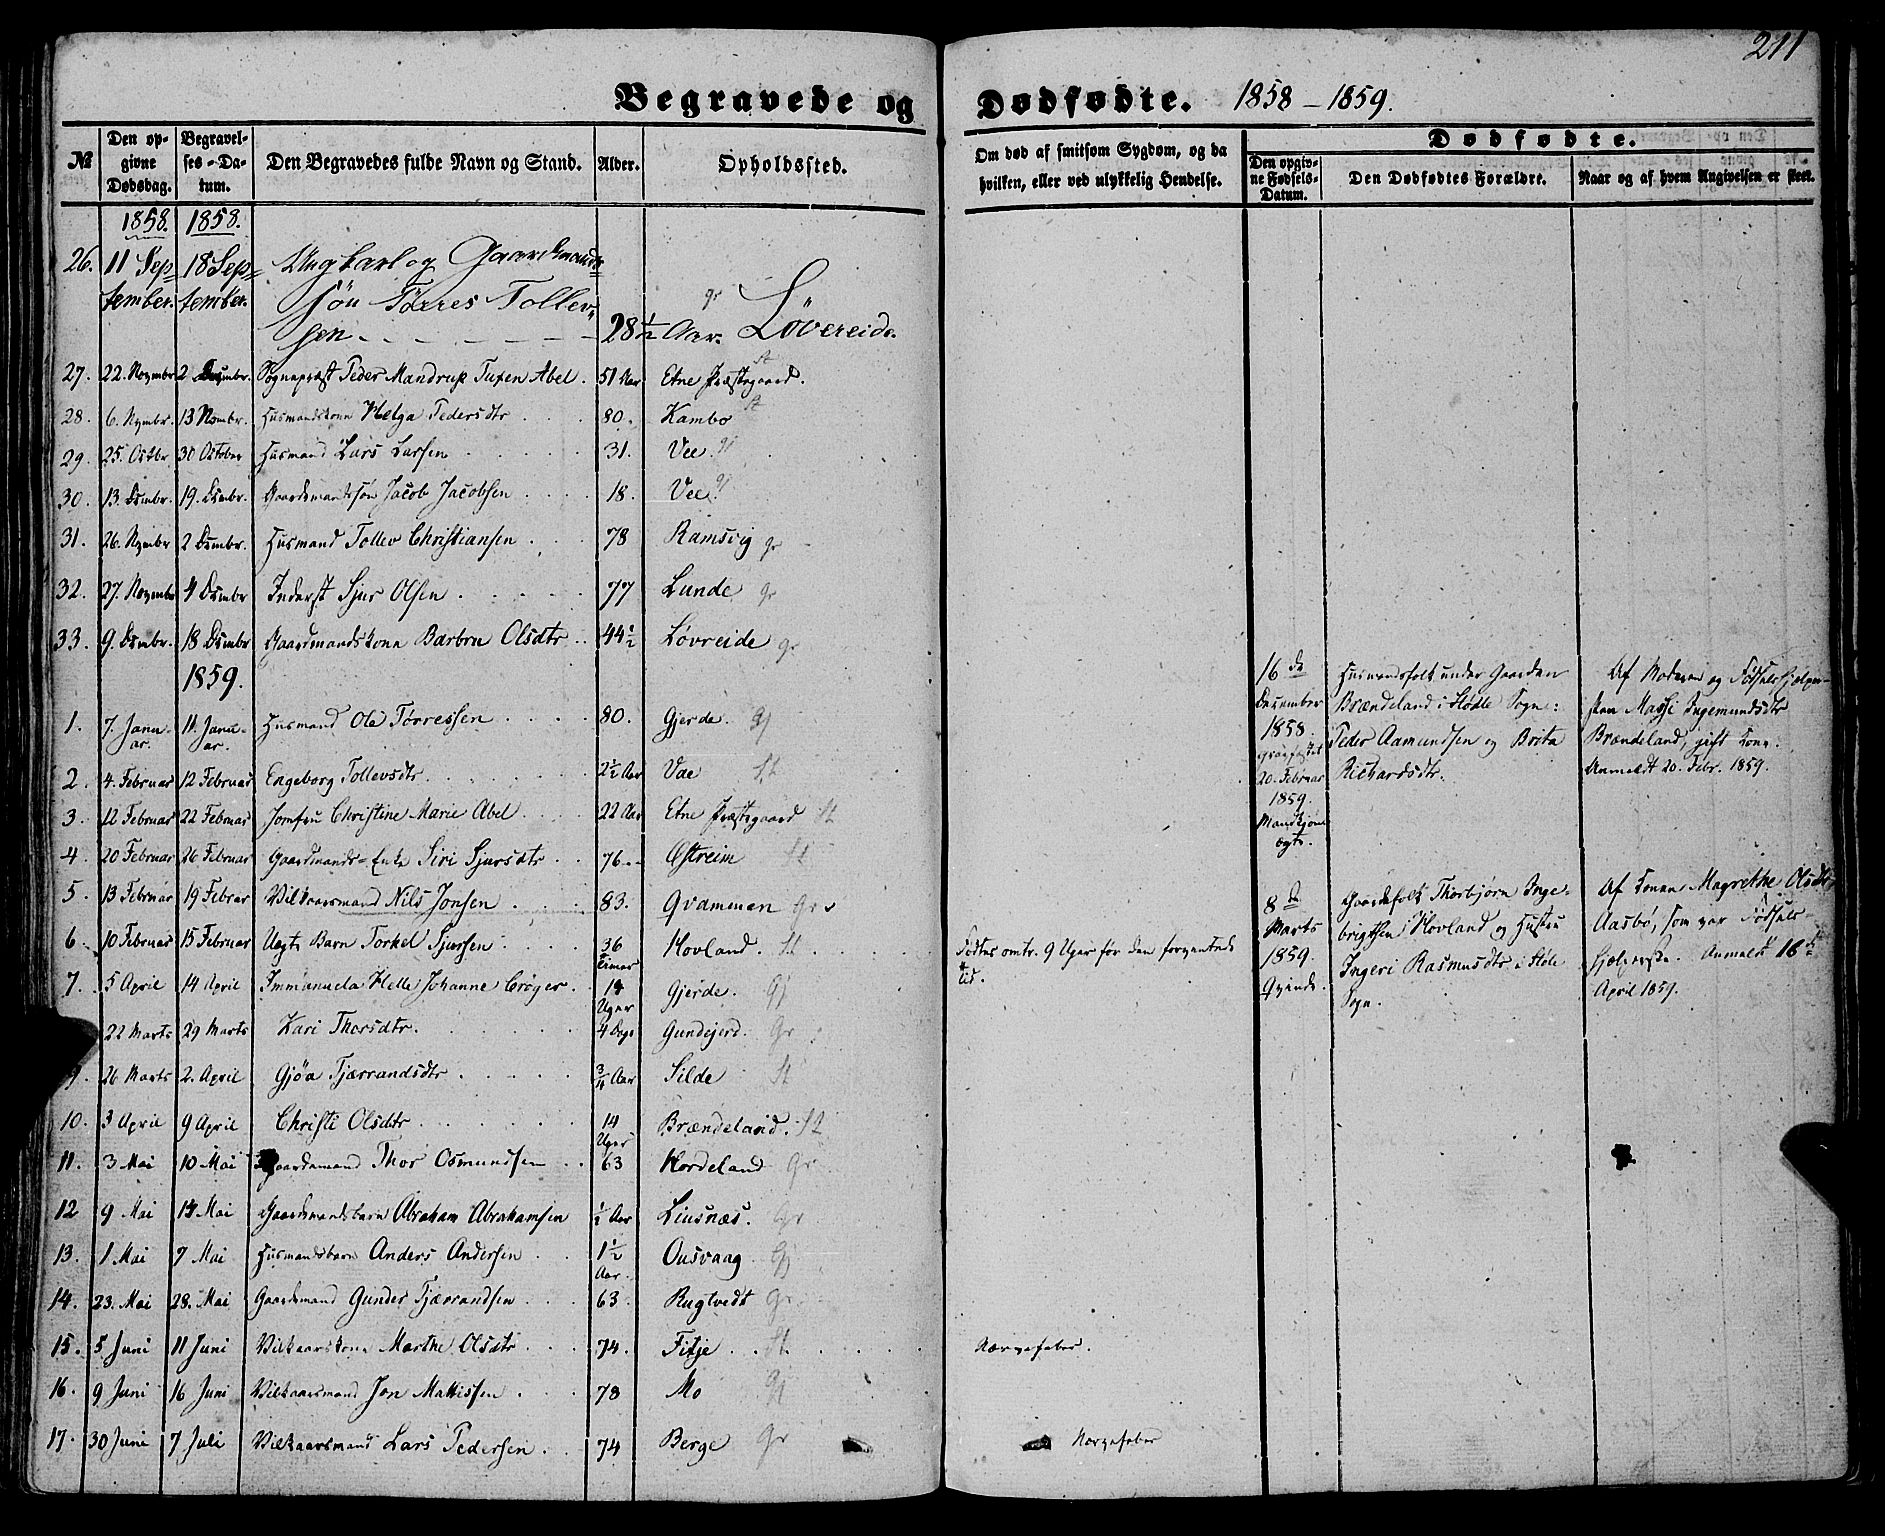 211
Begravede og Dødfødte. 1858 - 1859.
№ Den opgivne Dødsdag. Begravelses-Datum. Den Begravedes fulde Navn og Stand. Alder. Opholdssted. Om død af smitsom Sygdom, og da hvilken, eller ved ulykkelig Hendelse. Dødfødte.
Den opgivne Fødsels-Datum. Den Dødfødtes Forældre. Naar og af hvem Angivelsen er skeet.
1858. 1858.
26. 11 Sep= 18 Sep= Ungkarl og Gaardmands=
tember. tember. søn Tørres Tollev=
sen 28 1/2 Aar. Løvereide. gr
27. 22. Novmbr 2 Dsmbr. Sognepræst Peder Mandrup Tuxen Abel. 51 Aar Etne Præstegaard. St
28. 6. Nvmbr. 13 Novmbr. Husmandskone Helga Pedersdtr 80. Kambo St
29. 25. Octbr. 30 October Husmand Lars Larsen 31. Vee. gj
30. 13. Dsmbr. 19. Dsmbr. Gaardmandssøn Jacob Jacobsen 18. Vee. gj
31. 26. Nvmbr 2 Dsmbr. Husmand Tollev Christiansen 78 Ramsvig gr
32. 27. Novmbr 4 Dsmbr Inderst Sjur Olsen 77 Lunde gr
33. 9. Dsmbr. 18 Dsmbr Gaardmandskone Barbru Olsdtr 44 1/2 Løvreide gr
1859.
1. 7. Janu- 11. Janu- Husmand Ole Tørressen 80. Gjerde. Gj
ar. ar.
2. 4. Februar 12 Februar Engeborg Tollevsdtr 2 1/2 Aar Vae St
3. 12 Februar 22 Februar Jomfru Christine Marie Abel 22 Aar Etne Præstegaard St
4. 20 Februar 26 Februar Gaardmands-Enke Siri Sjursdtr 76 Østreim St
5. 13 Februar 19 Februar Vilkaarsmand Nils Jonsen 83. Qvammen Gr
6. 10 Februar 15 Februar Uegte Barn Torkel Sjursen 36 Timer Hovland. St Fødtes omtr. 9 Uger før den forventede
Tid.
7. 5 April 14 April Immanuela Helle Johanne Crøger. 14 Uger Gjerde. Gj
22 Marts 29 Marts Kari Thorsdtr. 4 Dage Gundegjerd. Gr
9. 26 Marts 2. April Gjøa Tjærrandsdtr 3/4 Aar Silde St
10. 3 April 9 April Christi Olsdtr 14 Uger Brændeland. St
11. 3 Mai 10 Mai Gaardsmand Thor Osmundsen 63 Hordeland Gr
12 9 Mai 14 Mai Gaardmandsbarn Abraham Abrahamsen 1/2 Aar Liusnæs. Gr
13. 1 Mai 7 Mai Husmandsbarn Anders Andersen 1 1/2 Aar. Ousvaag Gj
14. 23. Mai 28. Mai Gaardmand Gunder Tjærandsen 63. Rugtvedt Gr
15. 5 Juni 11 Juni Vilkaarskone Marthe Olsdtr 74. Fitje St Nervefeber.
16. 9 Juni 16 Juni Vilkaarsmand Jon Mathissen 78 Mo Gj
17. 30 Juni 7 Juli Vilkaarsmand Lars Pedersen 74 Berge Gr Nervefeber
16 de
December
1858.
gravfæstet
20. Februar
1859.
Mandkjøn
ægte.
Husmandsfolk under Gaarden
Brændeland i Stødle Sogn:
Peder Aamundsen og Brita
Richardsdtr.
Af Moderen og Fødselshjelper-
sken Massi Ingemundsdtr
Brændeland, gift Kone.
Anmeldt 20. Febr. 1859.
8 de
Marts
1859.
Qvinde.
Gaardfolk Thorbjørn Inge-
brigtsen Hovland og Hustru
Ingeri Rasmusdtr i Støle
Sogn.
Af Konen Magrethe Olsdtr
Aasbø, som var Fødsels-
hjelperske. Anmeldt 16 de
April 1859.